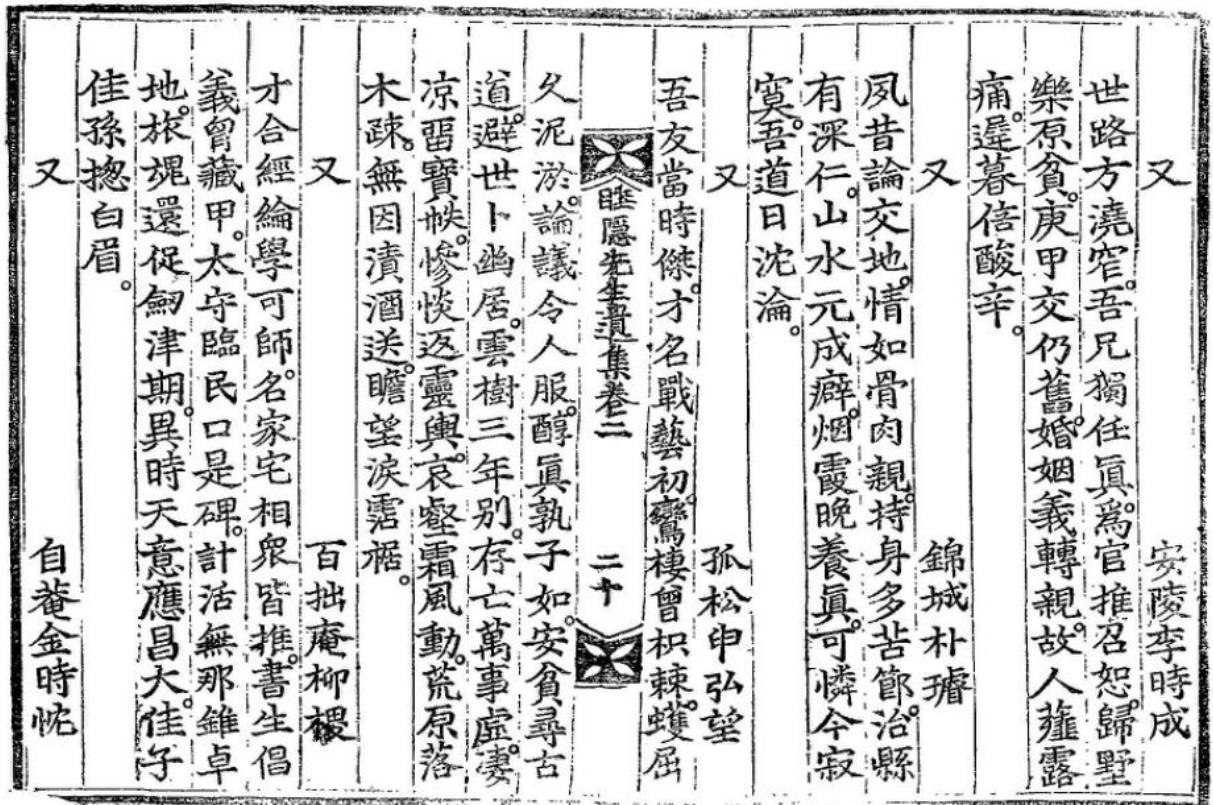 又 安陵李時成
世路方澆窄。吾兄獨任眞。爲官推召恕。歸墅
樂原貧。庚甲交仍舊。婚姻義轉親。故人薤露
痛。遲暮倍酸辛。
又 錦城朴璿
夙昔論交地。情如骨肉親。持身多苦節。治縣
有深仁。山水元成癖。烟霞晚養眞。可憐今寂
寞。吾道日沈淪。
又 孤松申弘望
吾友當時傑。才名戰藝初。鸞棲曾枳棘。蠖屈
睡隱先生遺集卷二 二十
久泥淤。論議令人服。醇眞孰子如。安貧尋古
道。避世卜幽居。雲樹三年別。存亡萬事虛。凄
凉留寶帙。慘惔返靈輿。哀壑霜風動。荒原落
木疎。無因漬酒送。瞻望淚霑裾。
又 百拙庵柳㮒
才合經綸學可師。名家宅相衆皆推。書生倡
義胷藏甲。太守臨民口是碑。計活無那錐卓
地。旅魂還促劒津期。異時天意應昌大。佳子
佳孫摠白眉。
又 自菴金時忱